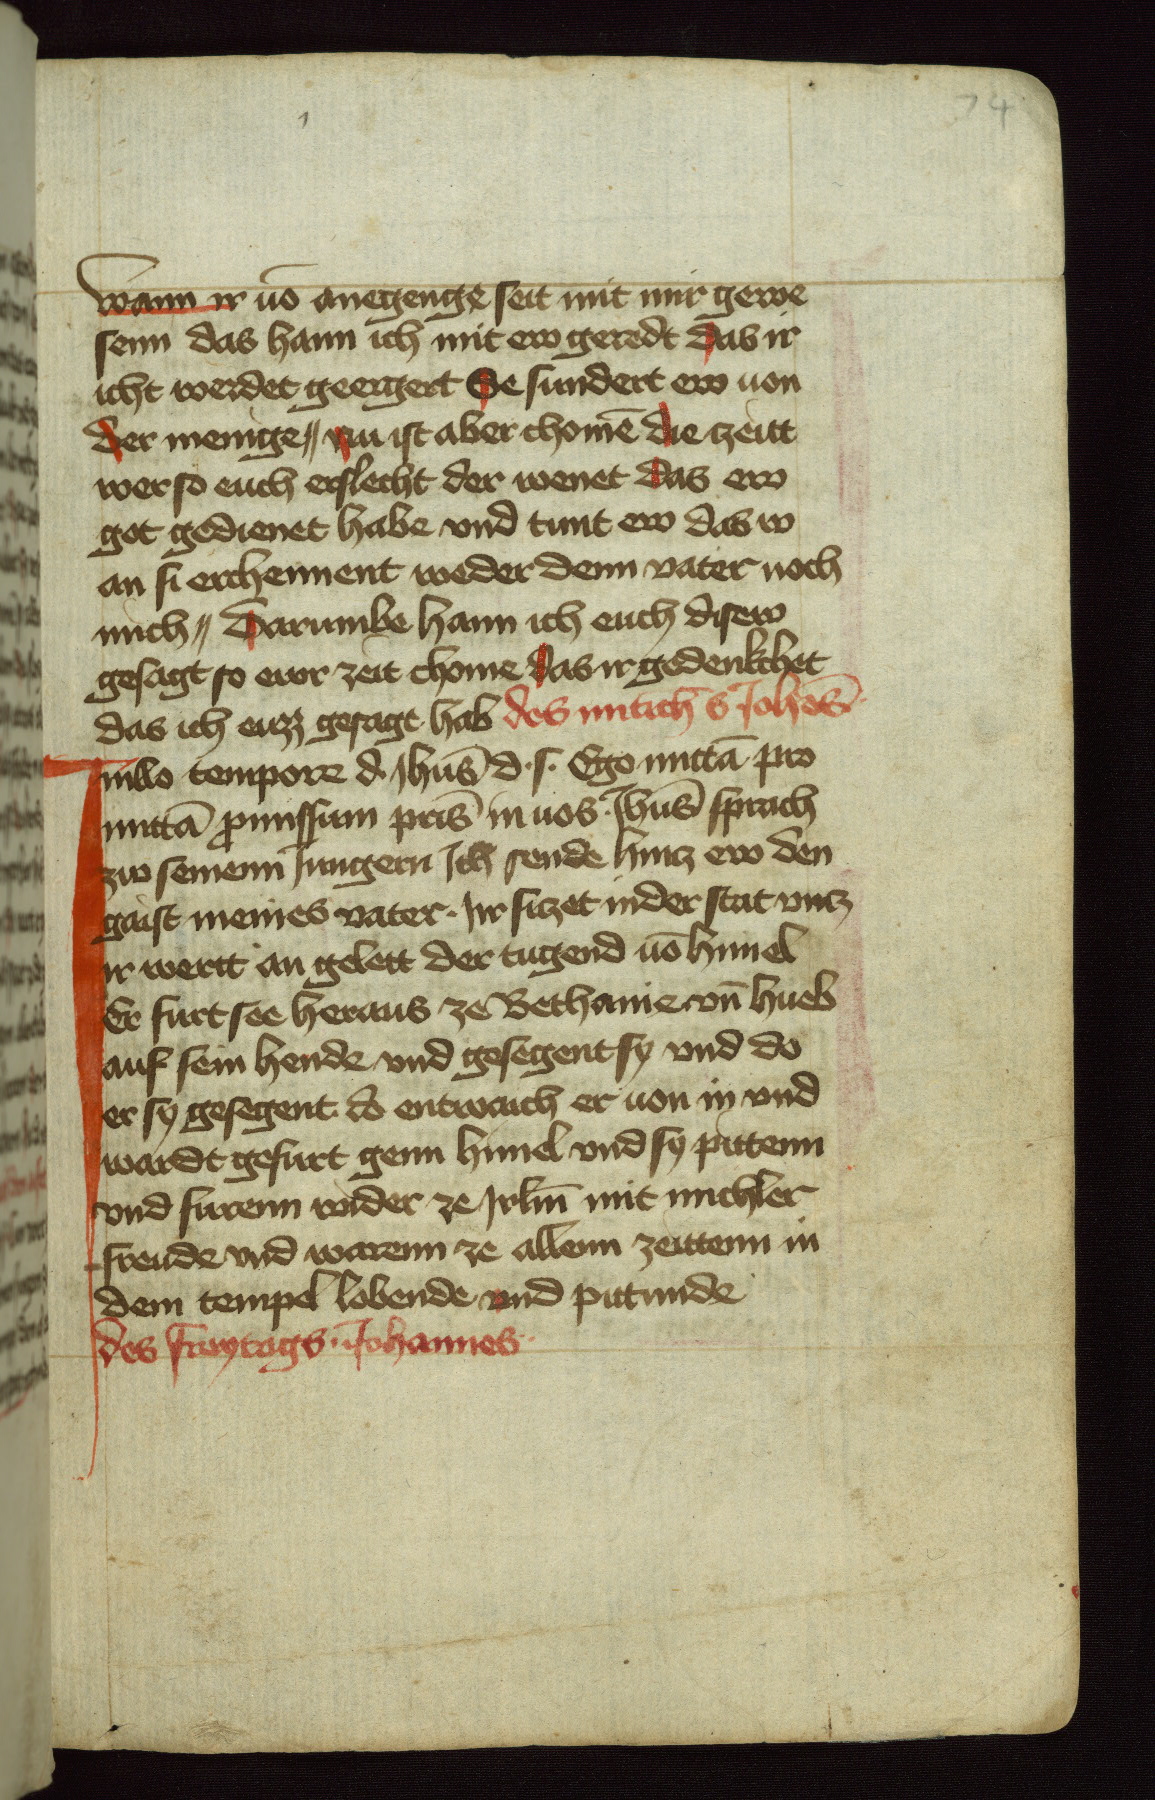 74
wann ir uō anegenge seit mit mir gewe
senn das hann ich mit ew geredt das ir
icht werdet geergert Se sundert ew uon
der menige // nu ist aber chomē die zeitt
wer so euch erslecht der wenet das ew
got gedienet habe vnd tunt ew das w
an si erchennent weder denn vater noch
mich // Darumbe hann ich euch disew
gesagt so ewr zeit chome das ir gedenkchet
das ich euzz gesagt hab des mitich s Johēs
In illo tempore d. Jhūs d. s. Ego mittā pro
mittā promissum pris̄ in uos. Jhūs sprach
zw seinenn Jungern Ich sende hintz ew den
gaist meines vater. Ir sitzet in der stat vntz
ir wertt an gelett der tugend uō himel
Er furt see heraus ze Bethanie vn̄ hueb
auf sein hende vnd gesegent sy vnd do
er sy gesegent do entwaich er uon in vnd
wardt gefurt genn himel vnd sy pittenn
vnd furenn wider ze Jrlm̄ mit michler
freude vnd warenn ze allenn zeittenn in
dem tempel lobende vnd pittunde
des fraytags. Johannes.